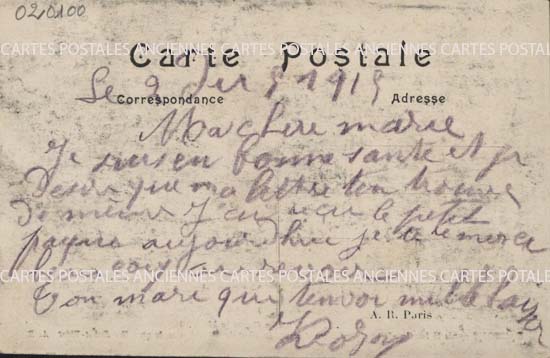 020100
Carte Postale
CARTES POSTALES ANCIENNES CARTES POSTALES ANCIENNES CARTES POSTALES ANCIENNES
Le 2 1915
Correspondance Adresse
Ma chere marie
Je suis en bonne sante et je
Desir que ma lettre ten trouve
De meme J'ai recu le petit
paquet aujourdhui je te remerci
CARTES POSTALES ANCIENNES CARTES POSTALES ANCIENNES CARTES POSTALES ANCIENNES
Ton mari qui tenvoi mille
A. R. Paris